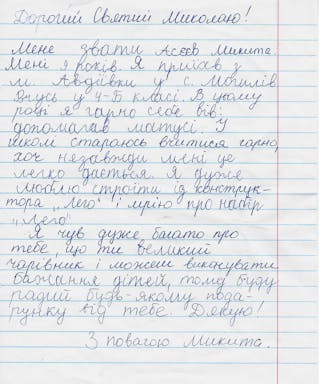 Дорогий Святий Миколаю!
Мене звати Асєєв Микита.
Мені 9 років. Я приїхав з
м. Авдіївки у с. Могилів
Вчусь у 4-Б класі. В цьому
році я гарно себе вів:
допомагав матусі. У
школі стараюсь вчитися гарно,
хоч незавжди мені це
легко дається. Я дуже
люблю строїти із конструк-
тора „Лего" і мрію про набір
„Лего".
Я чув дуже багато про
тебе, що ти великий
чарівник і можеш виконувати
бажання дітей, тому буду
радий будь-якому пода-
рунку від тебе. Дякую!
З повагою Микита.